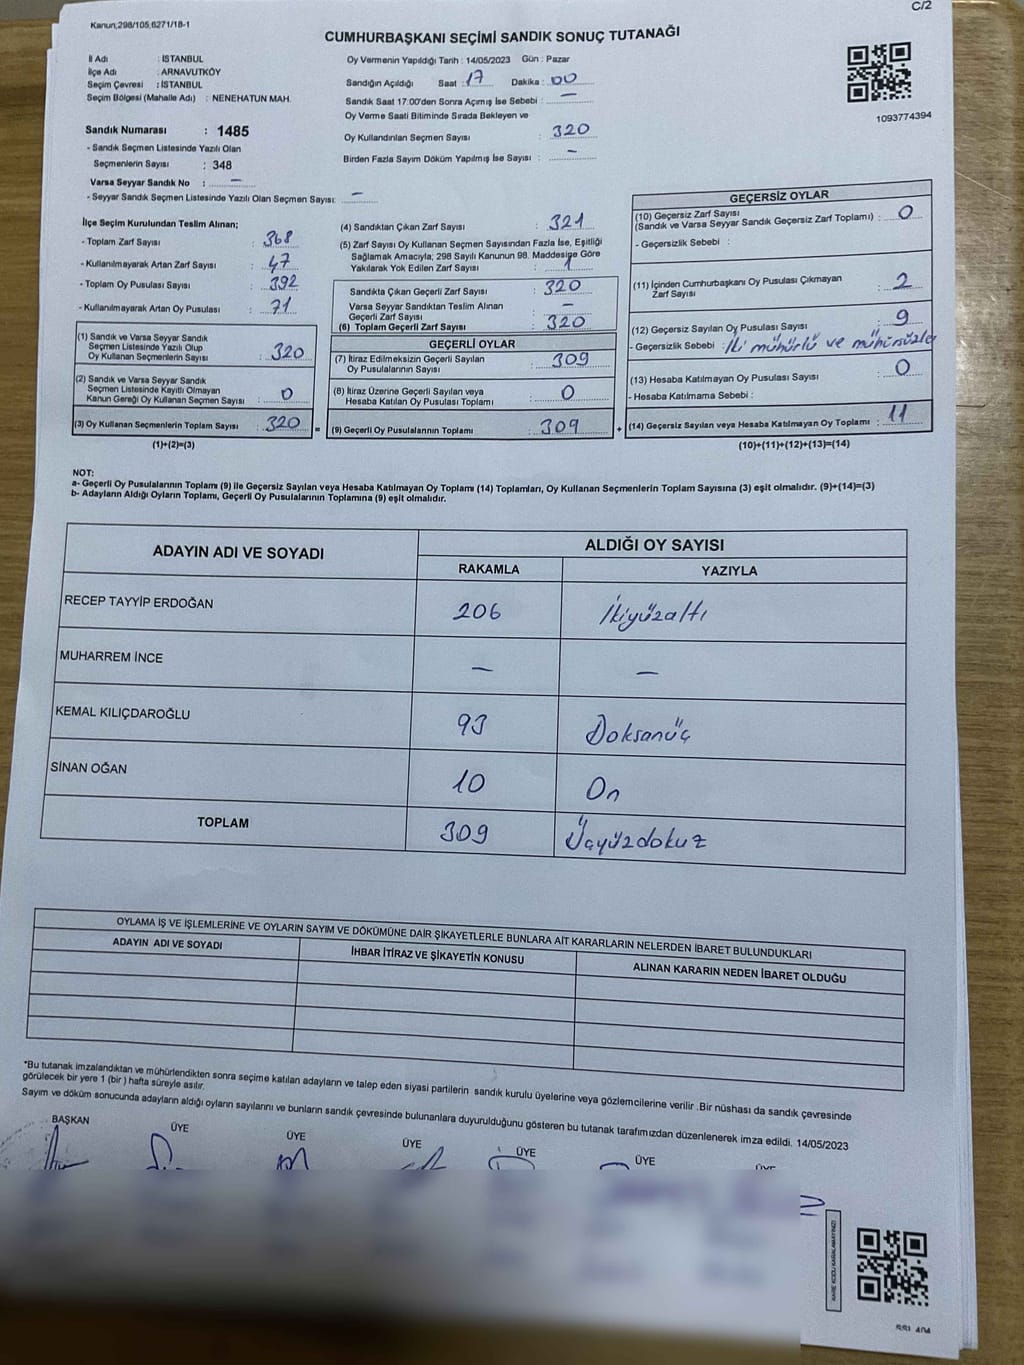 C/2
Kanun,298/105,6271/18-1
CUMHURBAŞKANI SEÇİMİ SANDIK SONUÇ TUTANAĞI
İl Adı : İSTANBUL
İlçe Adı : ARNAVUTKÖY
Seçim Çevresi : İSTANBUL
Seçim Bölgesi (Mahalle Adı) : NENEHATUN MAH.
Sandık Numarası : 1485
- Sandık Seçmen Listesinde Yazılı Olan
Seçmenlerin Sayısı : 348
Varsa Seyyar Sandık No : —
- Seyyar Sandık Seçmen Listesinde Yazılı Olan Seçmen Sayısı: —
Oy Vermenin Yapıldığı Tarih : 14/05/2023 Gün : Pazar
Sandığın Açıldığı Saat : 17 Dakika : 00
Sandık Saat 17:00'den Sonra Açımış İse Sebebi : —
Oy Verme Saati Bitiminde Sırada Bekleyen ve
Oy Kullandırılan Seçmen Sayısı : 320
Birden Fazla Sayım Döküm Yapılmış İse Sayısı : —
1093774394
İlçe Seçim Kurulundan Teslim Alınan;
- Toplam Zarf Sayısı : 368
- Kullanılmayarak Artan Zarf Sayısı : 47
- Toplam Oy Pusulası Sayısı : 392
- Kullanılmayarak Artan Oy Pusulası : 71
(1) Sandık ve Varsa Seyyar Sandık
Seçmen Listesinde Yazılı Olup
Oy Kullanan Seçmenlerin Sayısı : 320
(2) Sandık ve Varsa Seyyar Sandık
Seçmen Listesinde Kayıtlı Olmayan
Kanun Gereği Oy Kullanan Seçmen Sayısı : 0
(3) Oy Kullanan Seçmenlerin Toplam Sayısı : 320 =
(1)+(2)=(3)
(4) Sandıktan Çıkan Zarf Sayısı : 321
(5) Zarf Sayısı Oy Kullanan Seçmen Sayısından Fazla İse, Eşitliği
Sağlamak Amacıyla; 298 Sayılı Kanunun 98. Maddesine Göre
Yakılarak Yok Edilen Zarf Sayısı : 1
Sandıkta Çıkan Geçerli Zarf Sayısı : 320
Varsa Seyyar Sandıktan Teslim Alınan
Geçerli Zarf Sayısı : —
(6) Toplam Geçerli Zarf Sayısı : 320
GEÇERLİ OYLAR
(7) İtiraz Edilmeksizin Geçerli Sayılan
Oy Pusulalarının Sayısı : 309
(8) İtiraz Üzerine Geçerli Sayılan veya
Hesaba Katılan Oy Pusulası Toplamı : 0
(9) Geçerli Oy Pusulalarının Toplamı : 309 +
GEÇERSİZ OYLAR
(10) Geçersiz Zarf Sayısı
(Sandık ve Varsa Seyyar Sandık Geçersiz Zarf Toplamı) : 0
- Geçersizlik Sebebi :
(11) İçinden Cumhurbaşkanı Oy Pusulası Çıkmayan
Zarf Sayısı : 2
(12) Geçersiz Sayılan Oy Pusulası Sayısı : 9
- Geçersizlik Sebebi : İki mühürlü ve mühürsüzler
(13) Hesaba Katılmayan Oy Pusulası Sayısı : 0
- Hesaba Katılmama Sebebi :
(14) Geçersiz Sayılan veya Hesaba Katılmayan Oy Toplamı : 11
(10)+(11)+(12)+(13)=(14)
NOT:
a- Geçerli Oy Pusulalarının Toplamı (9) ile Geçersiz Sayılan veya Hesaba Katılmayan Oy Toplamı (14) Toplamları, Oy Kullanan Seçmenlerin Toplam Sayısına (3) eşit olmalıdır. (9)+(14)=(3)
b- Adayların Aldığı Oyların Toplamı, Geçerli Oy Pusulalarının Toplamına (9) eşit olmalıdır.
ADAYIN ADI VE SOYADI ALDIĞI OY SAYISI
RAKAMLA YAZIYLA
RECEP TAYYİP ERDOĞAN 206 İkiyüzaltı
MUHARREM İNCE — —
KEMAL KILIÇDAROĞLU 93 Doksanüç
SİNAN OĞAN 10 On
TOPLAM 309 Üçyüzdokuz
OYLAMA İŞ VE İŞLEMLERİNE VE OYLARIN SAYIM VE DÖKÜMÜNE DAİR ŞİKAYETLERLE BUNLARA AİT KARARLARIN NELERDEN İBARET BULUNDUKLARI
ADAYIN ADI VE SOYADI İHBAR İTİRAZ VE ŞİKAYETİN KONUSU ALINAN KARARIN NEDEN İBARET OLDUĞU
*Bu tutanak imzalandıktan ve mühürlendikten sonra seçime katılan adayların ve talep eden siyasi partilerin sandık kurulu üyelerine veya gözlemcilerine verilir .Bir nüshası da sandık çevresinde
görülecek bir yere 1 (bir ) hafta süreyle asılır.
Sayım ve döküm sonucunda adayların aldığı oyların sayılarını ve bunların sandık çevresinde bulunanlara duyurulduğunu gösteren bu tutanak tarafımızdan düzenlenerek imza edildi. 14/05/2023
BAŞKAN ÜYE ÜYE ÜYE ÜYE ÜYE ÜYE
KARE KODU KARALAMAYINIZ!